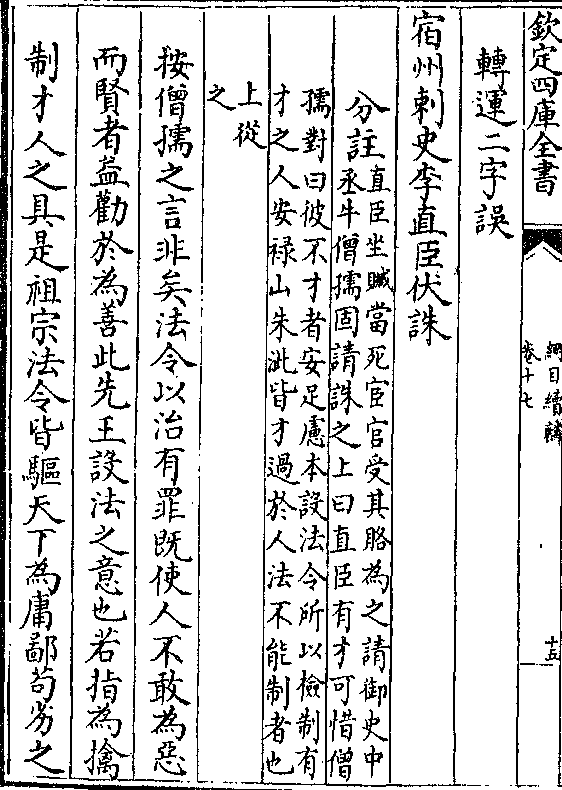 欽定四庫全書
綱目續麟
卷十七
十五
轉運二字誤
宿州刺史李直臣伏誅
分註直臣坐贓當死宦官受其賂為之請御史中
丞牛僧孺固請誅之上曰直臣有才可惜僧
孺對曰彼不才者安足慮本設法令所以檢制有
才之人安祿山朱泚皆才過於人法不能制者也
上從
之
按僧孺之言非矣法令以治有罪旣使人不敢為惡
而賢者益勸於為善此先王設法之意也若指為擒
制才人之具是祖宗法令皆驅天下為庸鄙苟劣之